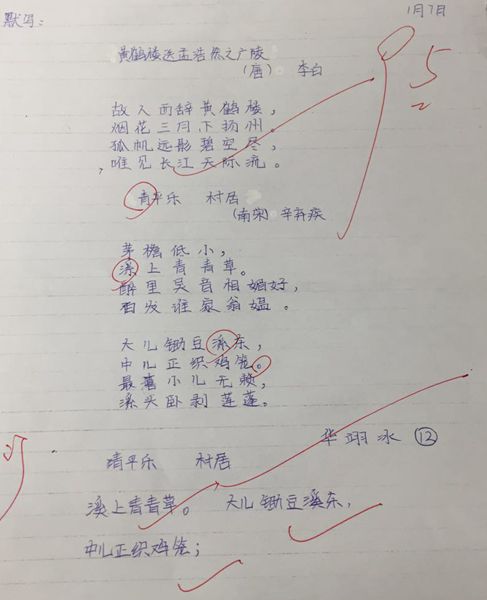 默写:
1月7日
黄鹤楼送孟浩然之广陵
5
(唐) 李白
故人西辞黄鹤楼,
烟花三月下扬州。
孤帆远影碧空尽,
唯见长江天际流。
青平乐 村居
(南宋) 辛弃疾
茅檐低小,
溪上青青草。
醉里吴音相媚好,
白发谁家翁媪。
大儿锄豆溪东,
中儿正织鸡笼。
最喜小儿无赖,
溪头卧剥莲蓬。
华翊冰 ⑫
清平乐 村居
溪上青青草。 大儿锄豆溪东,
中儿正织鸡笼;